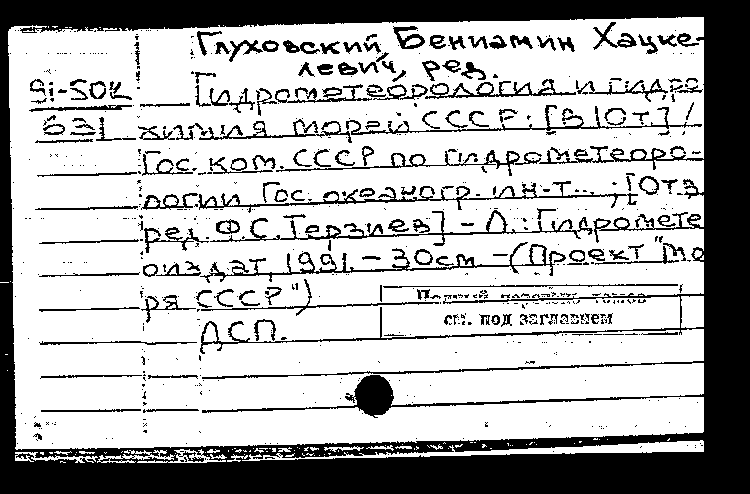 Глуховский, Бениамин Хацке-
левич, ред.
91-50к Гидрометеорология и гидро
631 химия морей СССР: [В 10 т.] /
Гос. ком. СССР по гидрометеоро-
логии, Гос. океаногр. ин-т... ; [Отв.
ред. Ф.С. Терзиев] - Л.: Гидромете
оиздат, 1991. - 30см. - (Проект "Мо
ря СССР")
Полный перечень томов
см. под заглавием
ДСП.